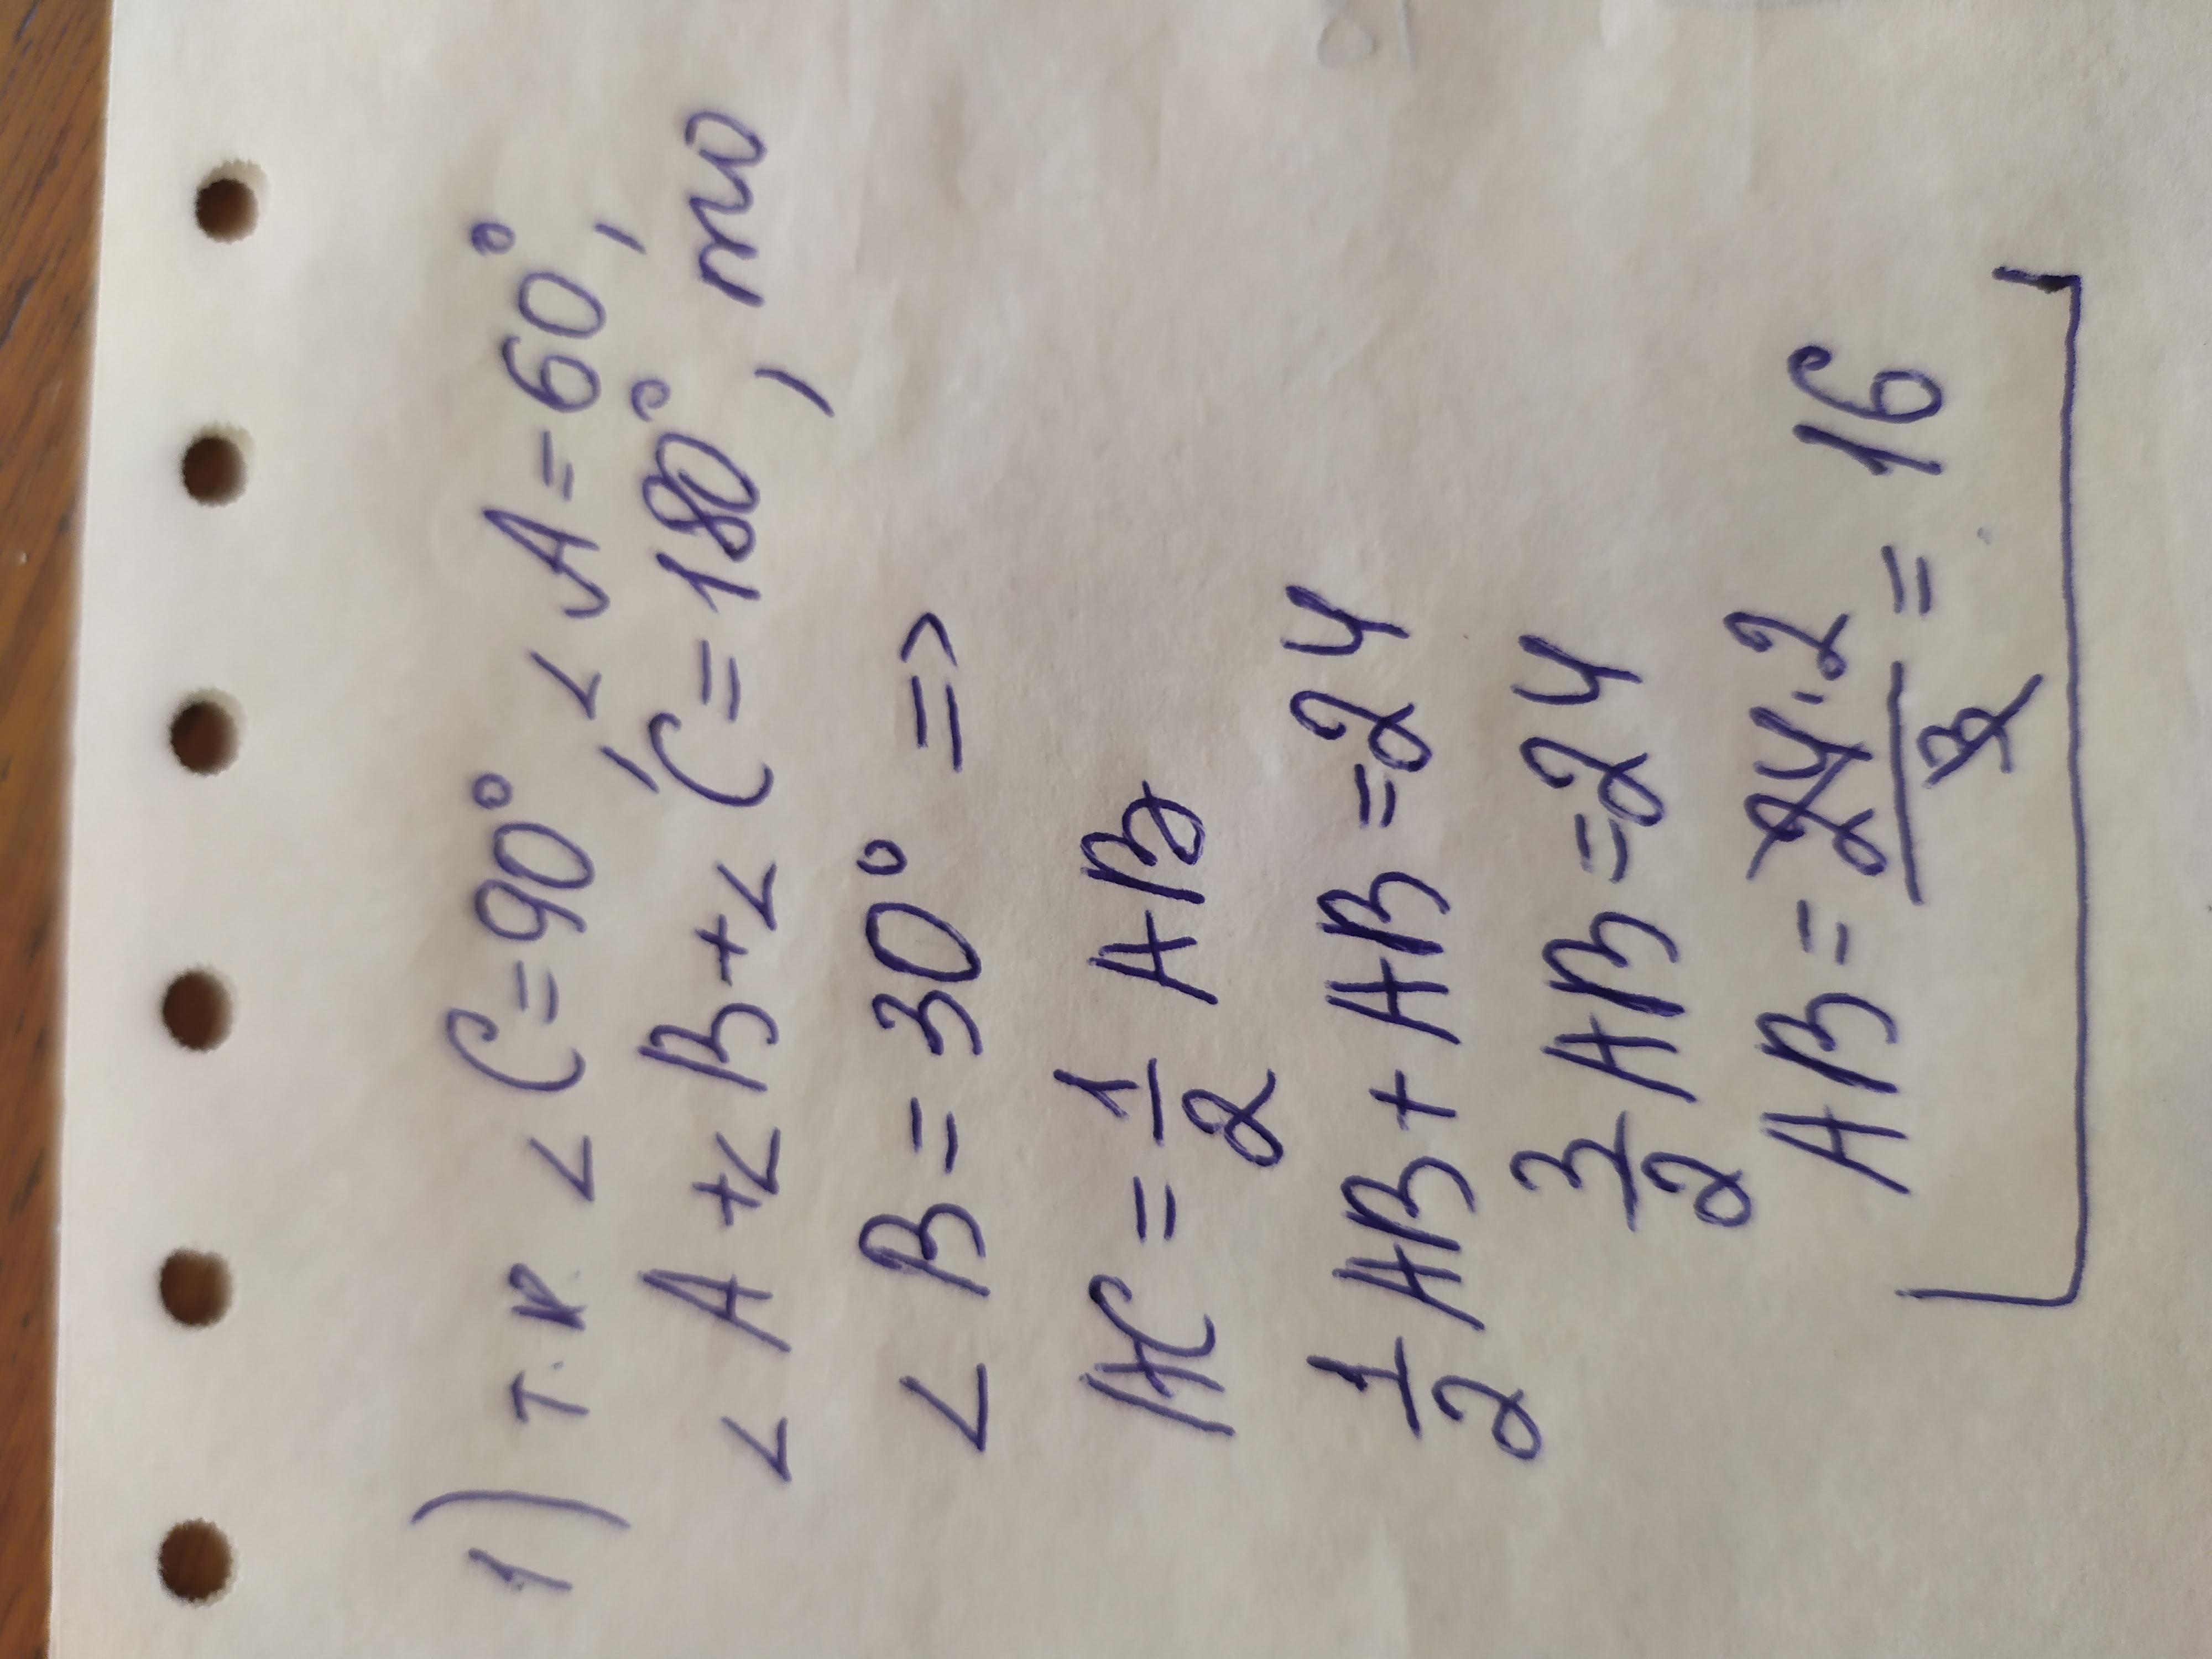 1) т.к. ∠C=90°, ∠A=60°,
∠A+∠B+∠C=180°, то
∠B=30° =>
AC = 1/2 AB
1/2 AB + AB = 24
3/2 AB = 24
AB = 24·2/3 = 16